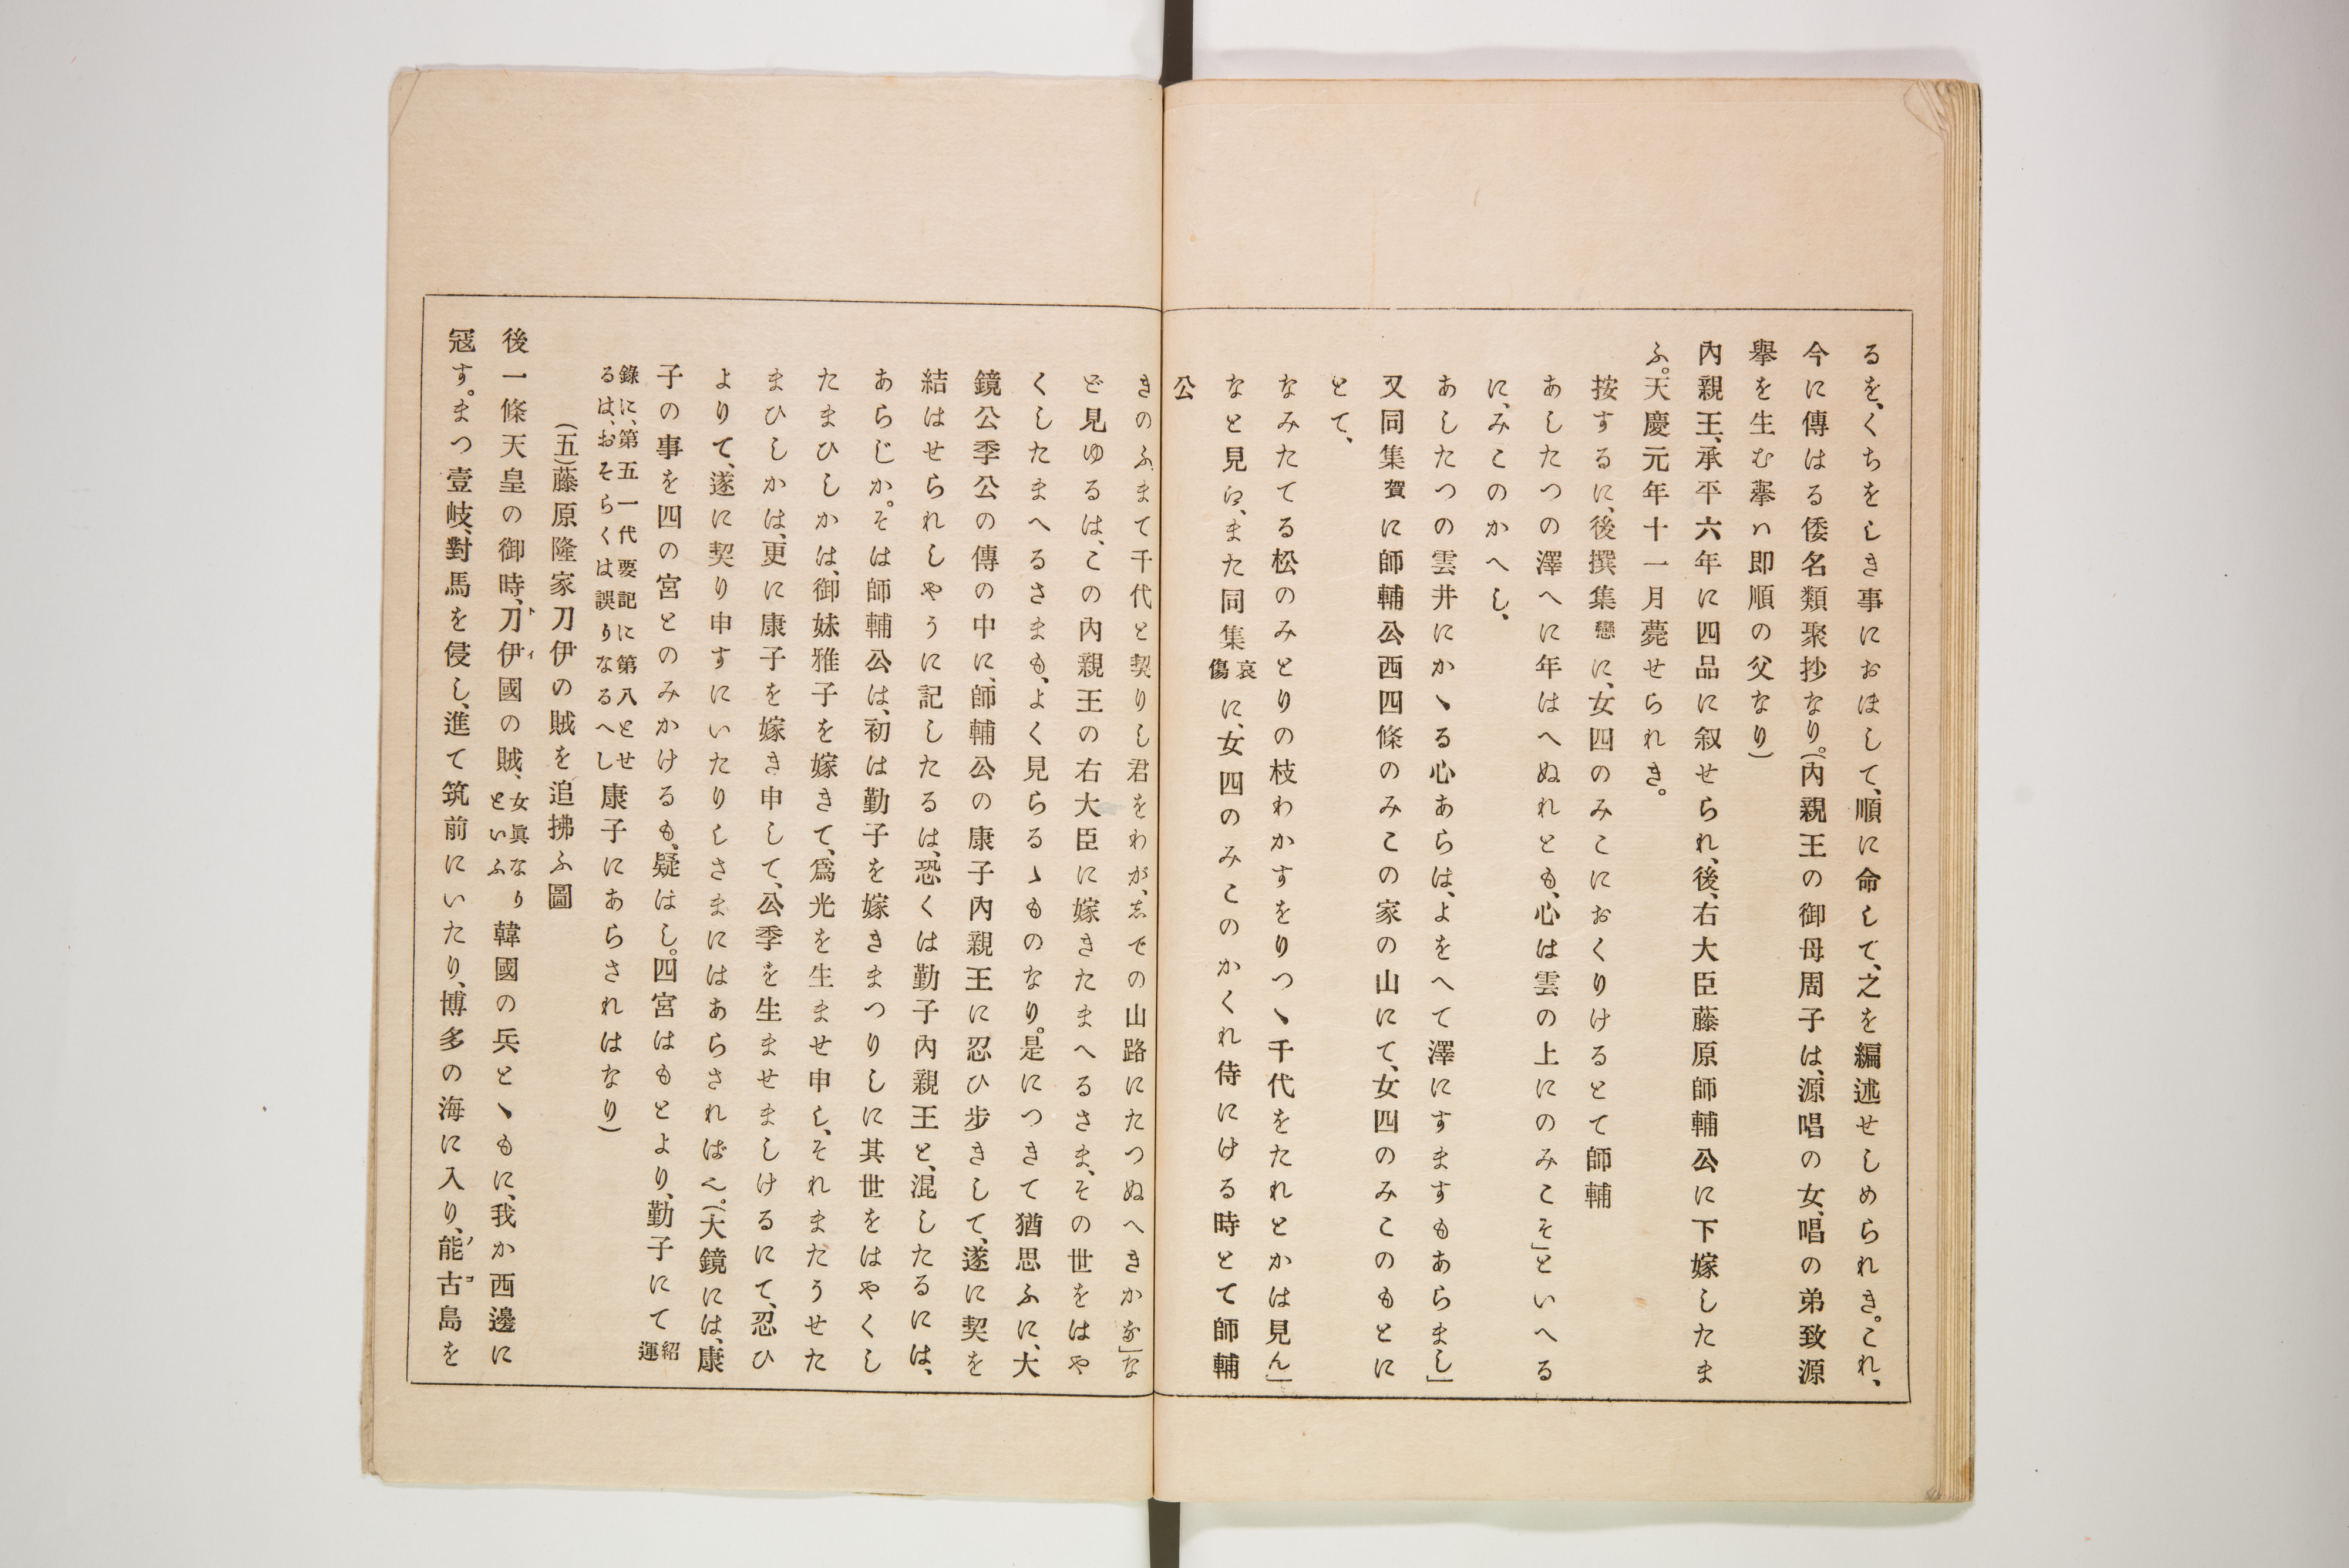 るを、くちをしき事におほして、順に命して、之を編述せしめられき。これ、
今に傳はる倭名類聚抄なり。(內親王の御母周子は、源唱の女、唱の弟致源
擧を生む擧ハ即順の父なり)
內親王、承平六年に四品に叙せられ、後、右大臣藤原師輔公に下嫁したま
ふ。天慶元年十一月薨せられき。
按するに、後撰集戀に、女四のみこにおくりけるとて師輔
あしたつの澤へに年はへぬれとも、心は雲の上にのみこそ」といへる
に、みこのかへし、
あしたつの雲井にかゝる心あらは、よをへて澤にすますもあらまし」
又同集賀に師輔公西四條のみこの家の山にて、女四のみこのもとに
とて、
なみたてる松のみとりの枝わかすをりつゝ千代をたれとかは見ん」
なと見ぇ、また同集哀傷に、女四のみこのかくれ侍にける時とて師輔
公
きのふまて千代と契りし君をわが、志での山路にたつぬへきかな」な
ど見ゆるは、この內親王の右大臣に嫁きたまへるさま、その世をはや
くしたまへるさまも、よく見らるゝものなり。是につきて猶思ふに、大
鏡公季公の傳の中に、師輔公の康子內親王に忍ひ步きして、遂に契を
結はせられしやうに記したるは、恐くは勤子內親王と、混したるには、
あらじか。そは師輔公は、初は勤子を嫁きまつりしに其世をはやくし
たまひしかは、御妹雅子を嫁きて、爲光を生ませ申し、それまたうせた
まひしかは、更に康子を嫁き申して、公季を生ませましけるにて、忍ひ
よりて、遂に契り申すにいたりしさまにはあらさればへ。(大鏡には、康
子の事を四の宮とのみかけるも、疑はし。四宮はもとより、勤子にて紹運
錄に、第五一代要記に第八とせるは、おそらくは誤りなるへし康子にあらされはなり)
(五)藤原隆家刀伊の賊を追拂ふ圖
後一條天皇の御時、刀伊國の賊、女眞なりといふ韓國の兵とゝもに、我か西邊に
冦す。まつ壹岐、對馬を侵し、進て筑前にいたり、博多の海に入り、能古島を